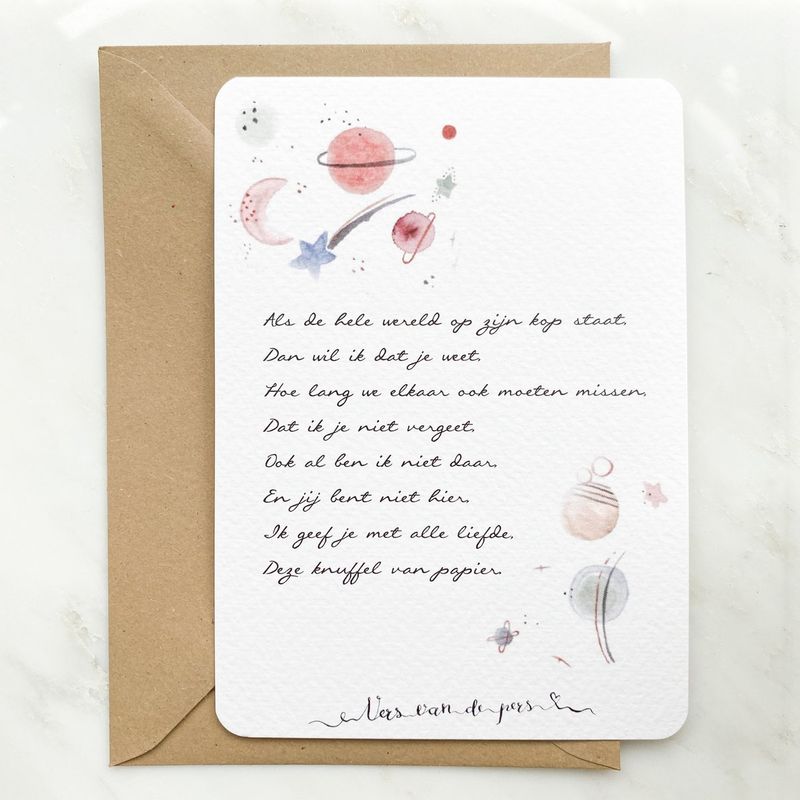 Als de hele wereld op zijn kop staat,
Dan wil ik dat je weet,
Hoe lang we elkaar ook moeten missen,
Dat ik je niet vergeet,
Ook al ben ik niet daar,
En jij bent niet hier,
Ik geef je met alle liefde,
Deze knuffel van papier.
Vers van de pers